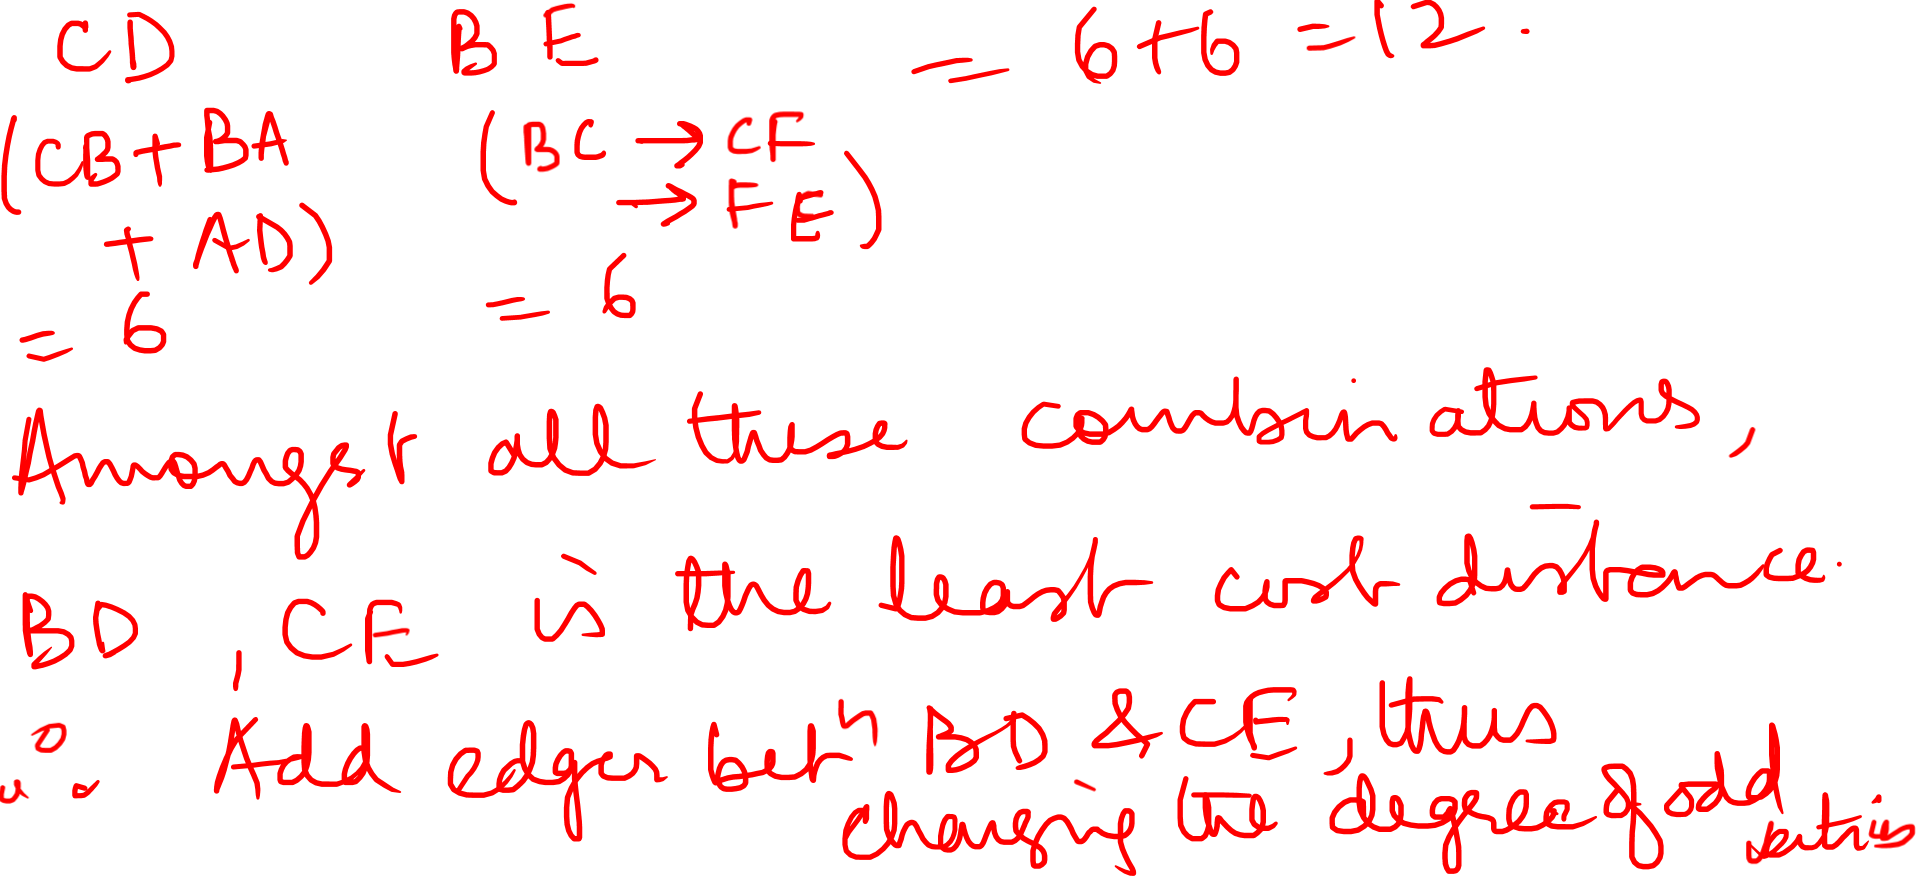 CD BE = 6+6 = 12.
(CB + BA (BC → CF
+ AD) → FE)
= 6 = 6
Amongst all these combinations,
BD, CE is the least cost distance.
∴ Add edges betⁿ BD & CE, thus
changing the degree of odd